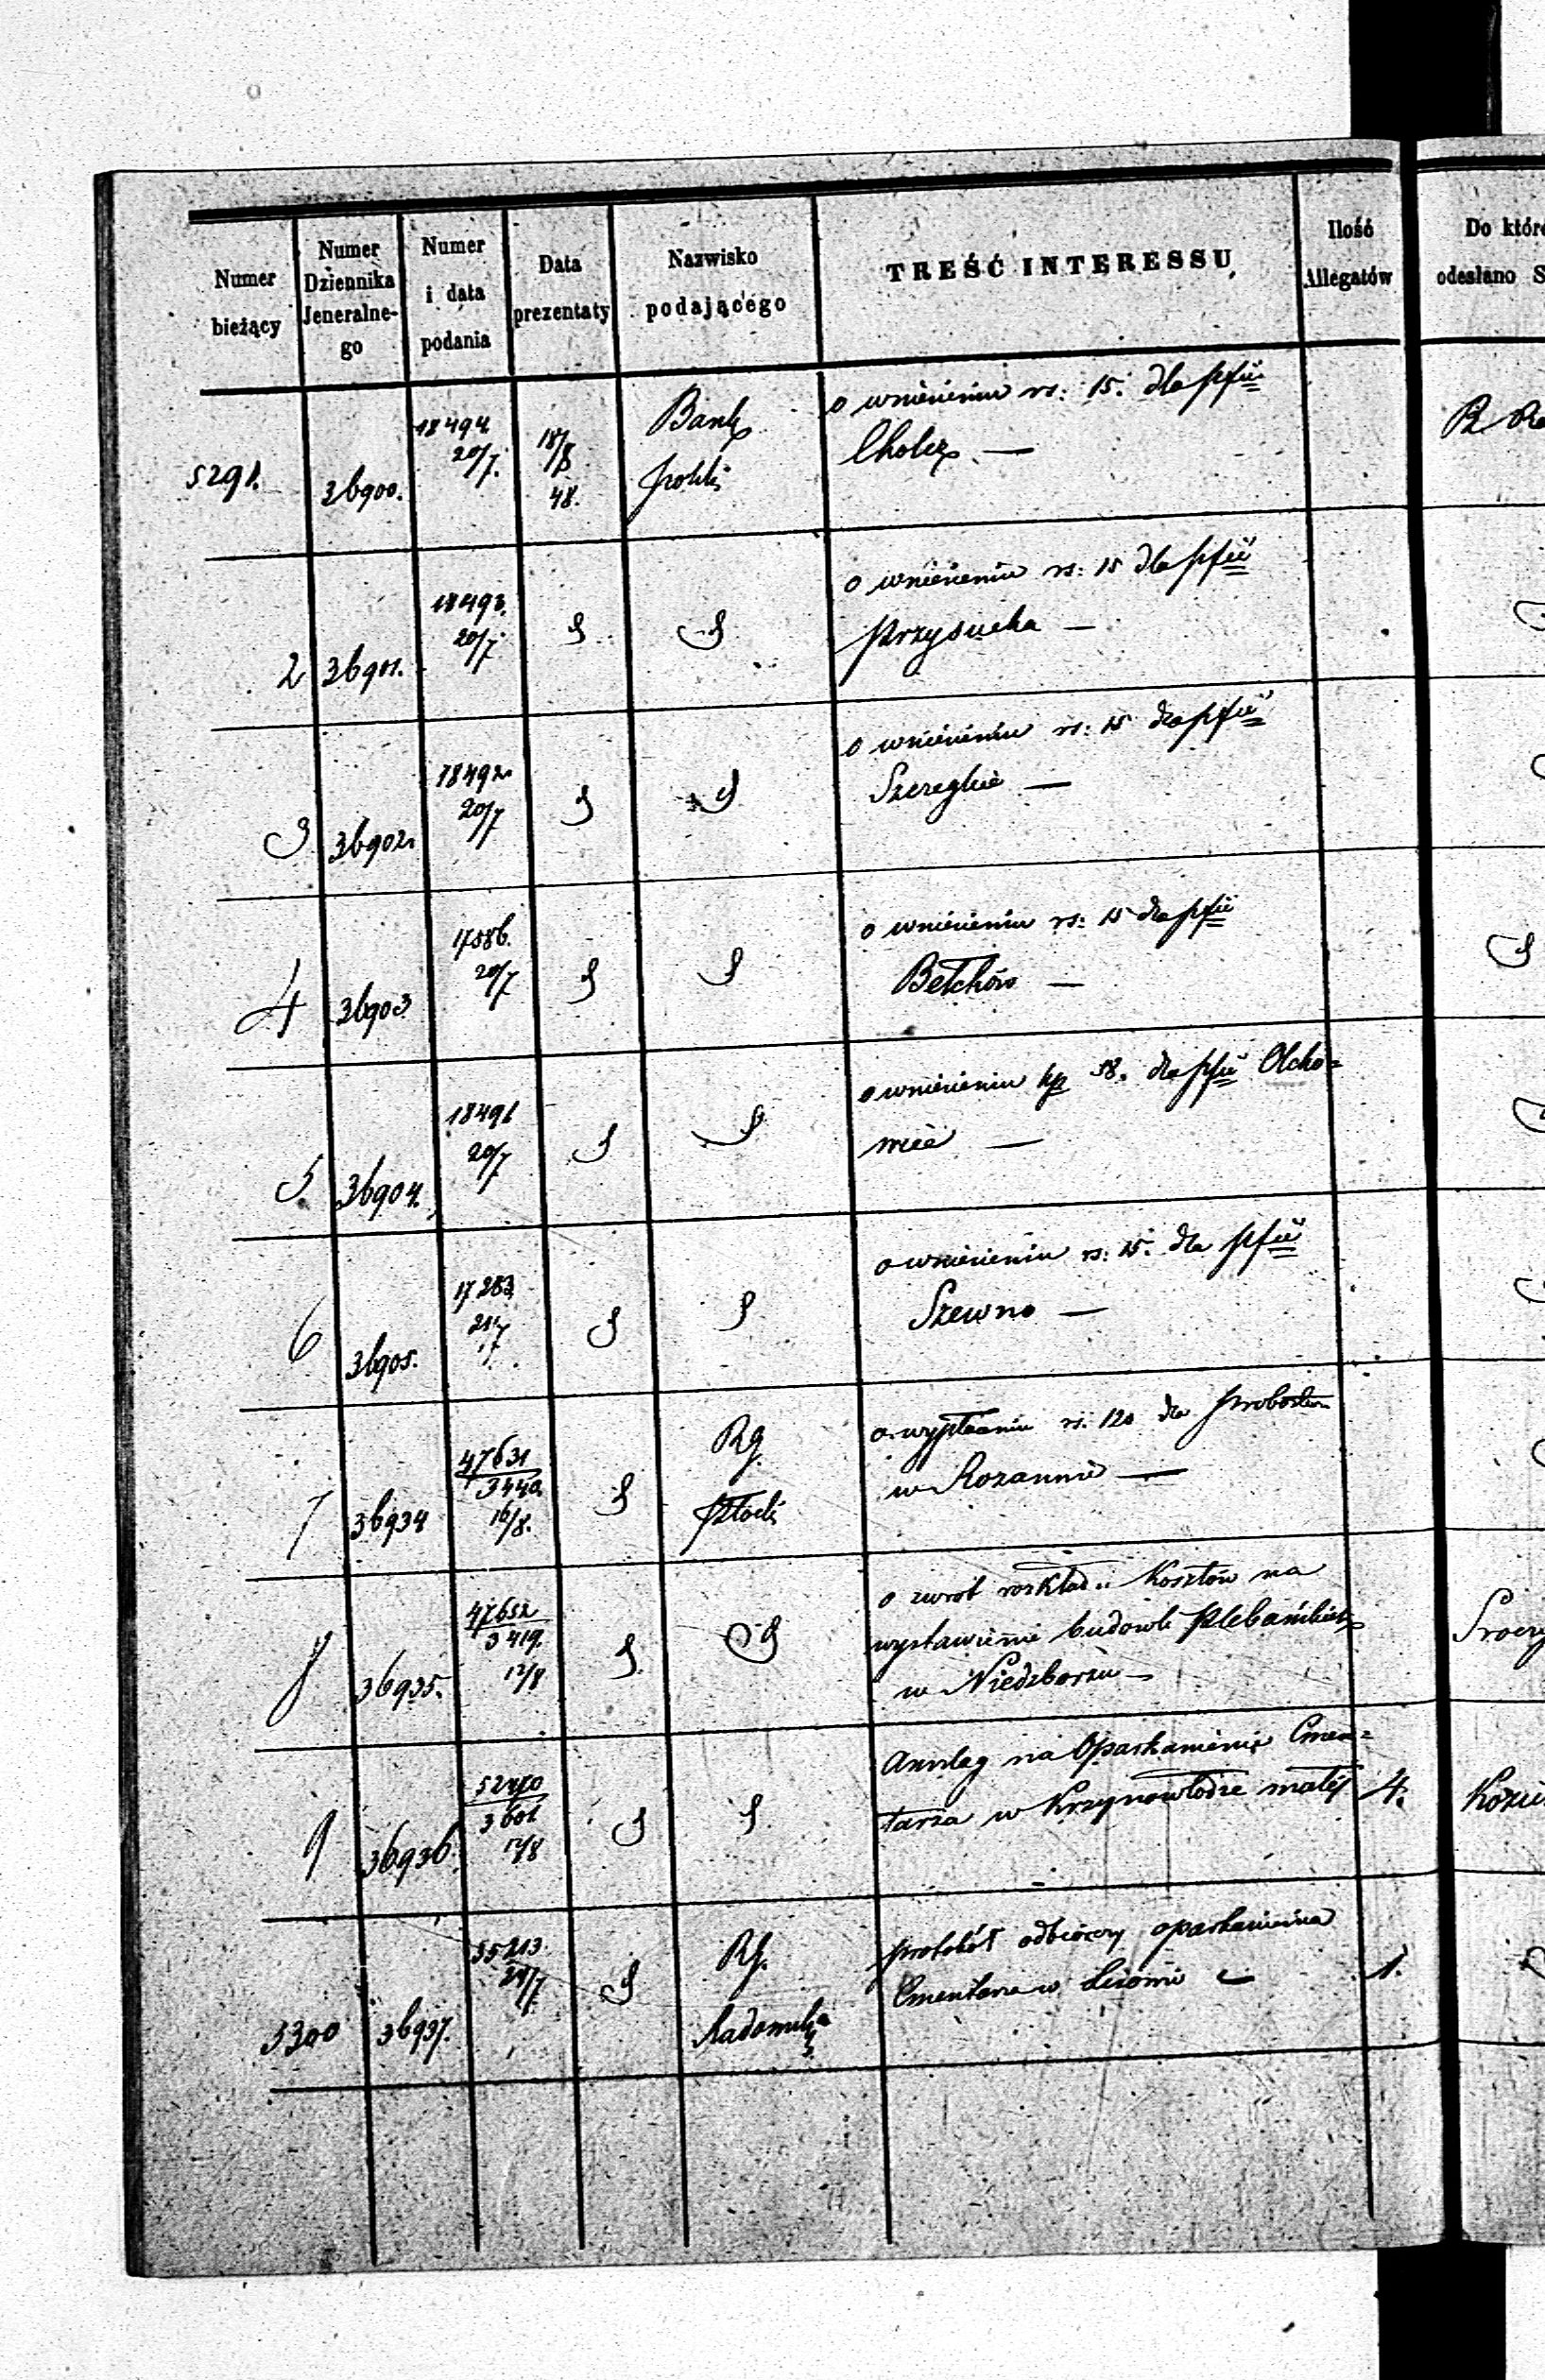 Numer bieżący
Numer Dziennika Jeneralne-go
Numer i data podania
Data prezentaty
Nazwisko podającego
TREŚĆ INTERESSU
Ilość Allegatów
Do któr
odesłano S
5291. 36900. 18494. 20/7. 18/8 48. Bank Polski
o wniesieniu rs: 15. dla pfii
2 36901. 18493. 20/7.
o wniesieniu rs: 15 dla pfii
Przysucha —
3 36902. 18492. 20/7
o wniesieniu rs: 15 dla pfii
4 36903 17586. 20/7
o wniesieniu rs: 15 dla pfii
Bełchów —
5. 36904. 18491 20/7
o wniesieniu kp 58. dla pfii
6 36905. 17283. 21/7
o wniesieniu rs: 15. dla pfii
Szewno —
7 36934 47631 3440. 16/8. Rg. Płocki
o wypłaceniu rs. 120 dla
w
8 36935. 47652 3419. 12/8
o zwrot rozkład: kosztów na
wystawienie budowli Plebańskich
w Niedzborzu —
9 36936. 3601 12/8
Anszlag na Oparkanienie Cmen=
tarza w Krzynowłodze małéj 4.
5300 36937. 35213. Rg. Radomski
protokół odbiorczy oparkanienia
Cmentarza w 1.